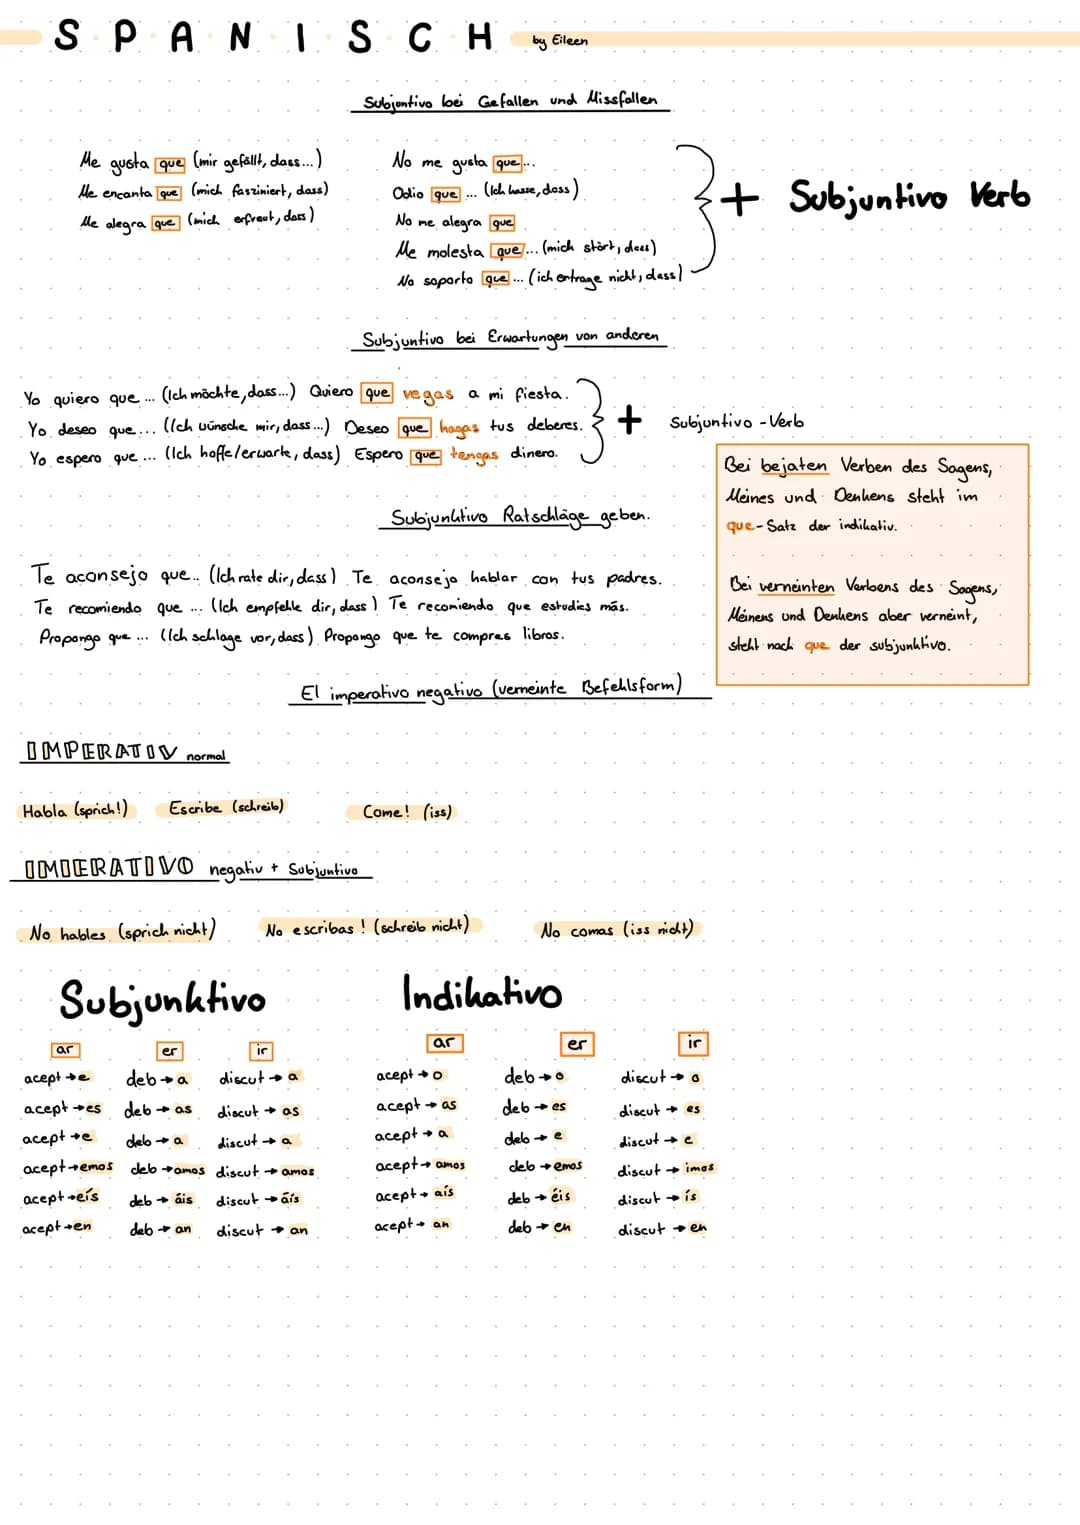 SPANISCH by Eileen
Subjuntivo bei Gefallen und Missfallen
Me gusta que (mir gefällt, dass...)
Me encanta que (mich fasziniert, dass)
Me alegra que (mich erfreut, dass)
No me gusta que...
Odio que ... (Ich hasse, dass)
No me alegra que
Me molesta que... (mich stört, dass)
No soporto que ... (ich ertrage nicht, dass)
+ Subjuntivo Verb
Subjuntivo bei Erwartungen von anderen
Yo quiero que ... (Ich möchte, dass...) Quiero que vegas a mi fiesta.
Yo deseo que... ((Ich wünsche mir, dass...) Deseo que hagas tus deberes.
Yo espero que ... (Ich hoffe/erwarte, dass) Espero que tengas dinero.
+ Subjuntivo-Verb
Bei bejaten Verben des Sagens,
Meines und Denkens steht im
que-Satz der indikativ.
Bei verneinten Verbens des Sagens,
Meinens und Denkens aber verneint,
steht nach que der subjunktivo.
Subjunktivo Ratschläge geben.
Te aconsejo que.. (Ich rate dir, dass) Te aconsejo hablar con tus padres.
Te recomiendo que ... (Ich empfehle dir, dass) Te recomiendo que estudies más.
Propongo que ... ((Ich schlage vor, dass) Propongo que te compres libros.
El imperativo negativo (verneinte Befehlsform)
IMPERATIV normal
Habla (sprich!) Escribe (schreib) Come! (iss)
IMPERATIVO negativ + Subjuntivo
No hables (sprich nicht) No escribas! (schreib nicht) No comas (iss nicht)
Subjunktivo
ar er ir
acept→e deb→a discut→a
acept→es deb→as discut→as
acept→e deb→a discut→a
acept→emos deb→amos discut→amos
acept→eís deb→áis discut→áis
acept→en deb→an discut→an
Indikativo
ar er ir
acept→o deb→o discut→o
acept→as deb→es discut→es
acept→a deb→e discut→e
acept→amos deb→emos discut→imos
acept→aís deb→éis discut→ís
acept→an deb→en discut→en